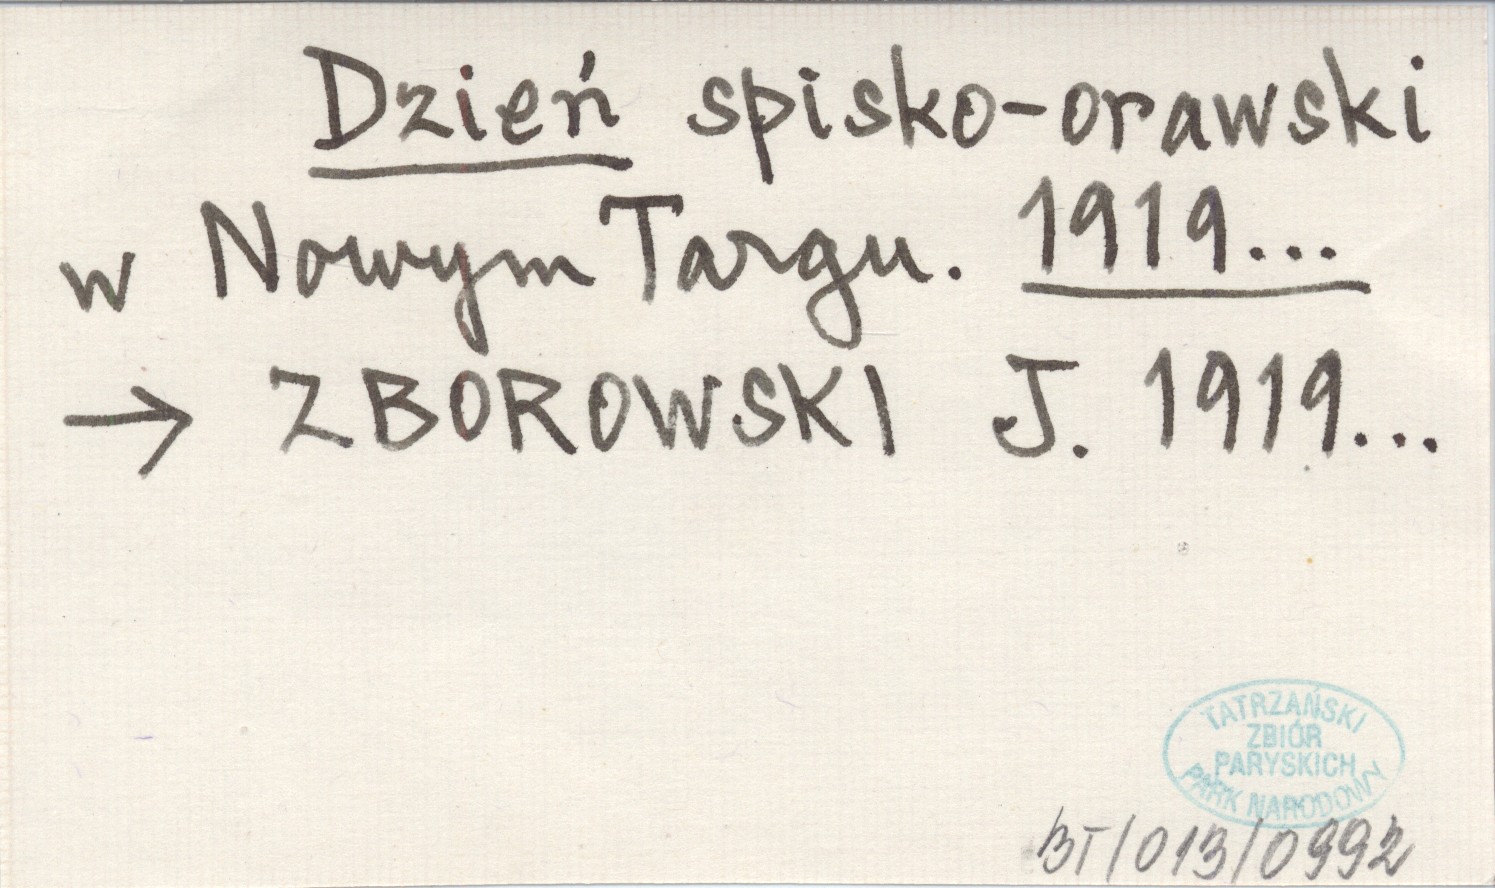 Dzień spisko-orawski
w Nowym Targu. 1919...
→ ZBOROWSKI J. 1919...
TATRZAŃSKI
ZBIÓR
PARYSKICH
PARK NARODOWY
BT/013/0992